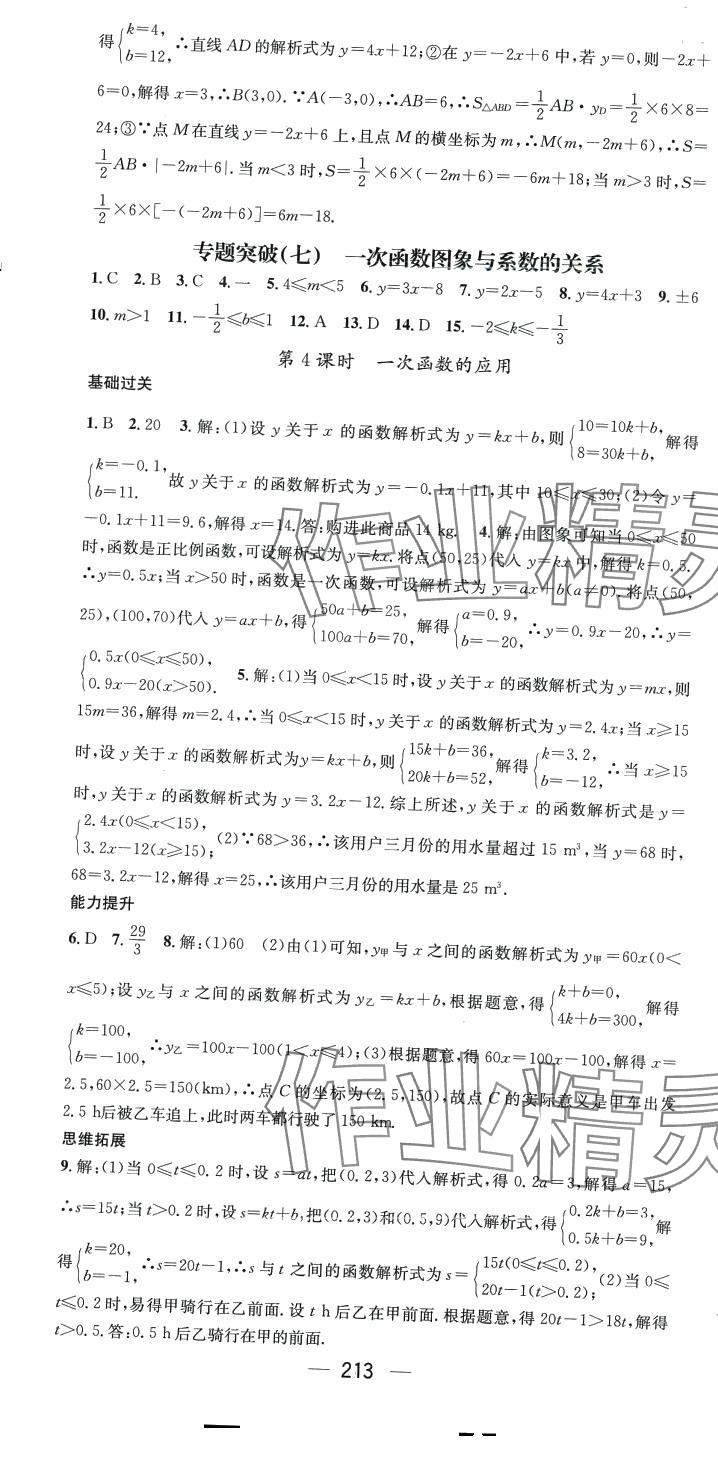 得{k=4, b=12, ∴直线 AD 的解析式为 y=4x+12;②在 y=-2x+6 中,若 y=0,则-2x+
6=0,解得 x=3,∴B(3,0).∵A(-3,0),∴AB=6,∴S△ABD=1/2AB·yD=1/2×6×8=
24;③∵点 M 在直线 y=-2x+6 上,且点 M 的横坐标为 m,∴M(m,-2m+6),∴S=
1/2AB·|-2m+6|.当 m<3 时,S=1/2×6×(-2m+6)=-6m+18;当 m>3 时,S=
1/2×6×[-(-2m+6)]=6m-18.
专题突破(七) 一次函数图象与系数的关系
1.C 2.B 3.C 4.一 5.4≤m<5 6.y=3x-8 7.y=2x-5 8.y=4x+3 9.±6
10.m>1 11.-1/2≤b≤1 12.A 13.D 14.D 15.-2≤k≤-1/3
第 4 课时 一次函数的应用
基础过关
1.B 2.20 3.解:(1)设 y 关于 x 的函数解析式为 y=kx+b,则{10=10k+b, 8=30k+b, 解得
{k=-0.1, b=11. 故 y 关于 x 的函数解析式为 y=-0.1x+11,其中 10≤x≤30;(2)令 y=
-0.1x+11=9.6,解得 x=14.答:购进此商品 14 kg. 4.解:由图象可知当 0≤x≤50
时,函数是正比例函数,可设解析式为 y=kx.将点(50,25)代入 y=kx 中,解得 k=0.5.
∴y=0.5x;当 x>50 时,函数是一次函数,可设解析式为 y=ax+b(a≠0).将点(50,
25),(100,70)代入 y=ax+b,得{50a+b=25, 100a+b=70, 解得{a=0.9, b=-20, ∴y=0.9x-20,∴y=
{0.5x(0≤x≤50), 0.9x-20(x>50). 5.解:(1)当 0≤x<15 时,设 y 关于 x 的函数解析式为 y=mx,则
15m=36,解得 m=2.4,∴当 0≤x<15 时,y 关于 x 的函数解析式为 y=2.4x;当 x≥15
时,设 y 关于 x 的函数解析式为y=kx+b,则{15k+b=36, 20k+b=52, 解得{k=3.2, b=-12, ∴当 x≥15
时,y 关于 x 的函数解析式为 y=3.2x-12.综上所述,y 关于 x 的函数解析式是 y=
{2.4x(0≤x<15), 3.2x-12(x≥15); (2)∵68>36,∴该用户三月份的用水量超过 15 m³,当 y=68 时,
68=3.2x-12,解得 x=25,∴该用户三月份的用水量是 25 m³.
能力提升
6.D 7.29/3 8.解:(1)60 (2)由(1)可知,y甲与 x 之间的函数解析式为 y甲=60x(0<
x≤5);设 y乙与 x 之间的函数解析式为 y乙=kx+b,根据题意,得{k+b=0, 4k+b=300, 解得
{k=100, b=-100, ∴y乙=100x-100(1<x≤4);(3)根据题意,得 60x=100x-100,解得 x=
2.5,60×2.5=150(km),∴点 C 的坐标为(2.5,150),故点 C 的实际意义是甲车出发
2.5 h后被乙车追上,此时两车都行驶了 150 km.
思维拓展
9.解:(1)当 0≤t≤0.2 时,设 s=at,把(0.2,3)代入解析式,得 0.2a=3,解得 a=15,
∴s=15t;当 t>0.2 时,设 s=kt+b,把(0.2,3)和(0.5,9)代入解析式,得{0.2k+b=3, 0.5k+b=9, 解
得{k=20, b=-1, ∴s=20t-1,∴s 与 t 之间的函数解析式为 s={15t(0≤t≤0.2), 20t-1(t>0.2); (2)当 0≤
t≤0.2 时,易得甲骑行在乙前面.设 t h 后乙在甲前面.根据题意,得 20t-1>18t,解得
t>0.5.答:0.5 h 后乙骑行在甲的前面.
— 213 —
作业精灵
作业精灵